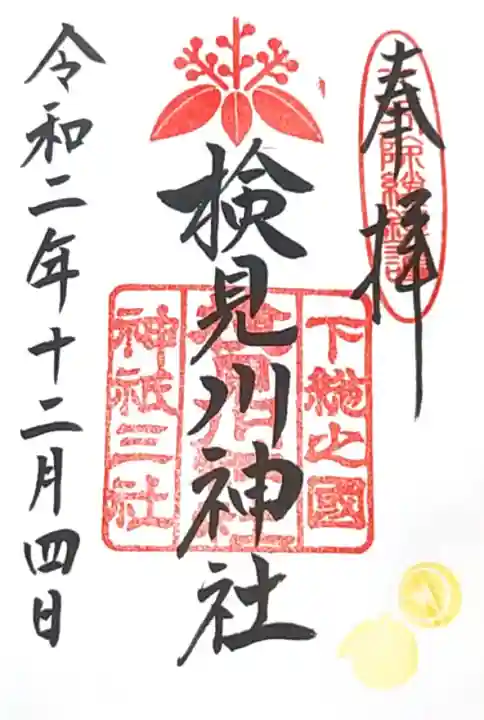 奉拝
下総之國
検見川神社
神祇三社
令和二年十二月四日